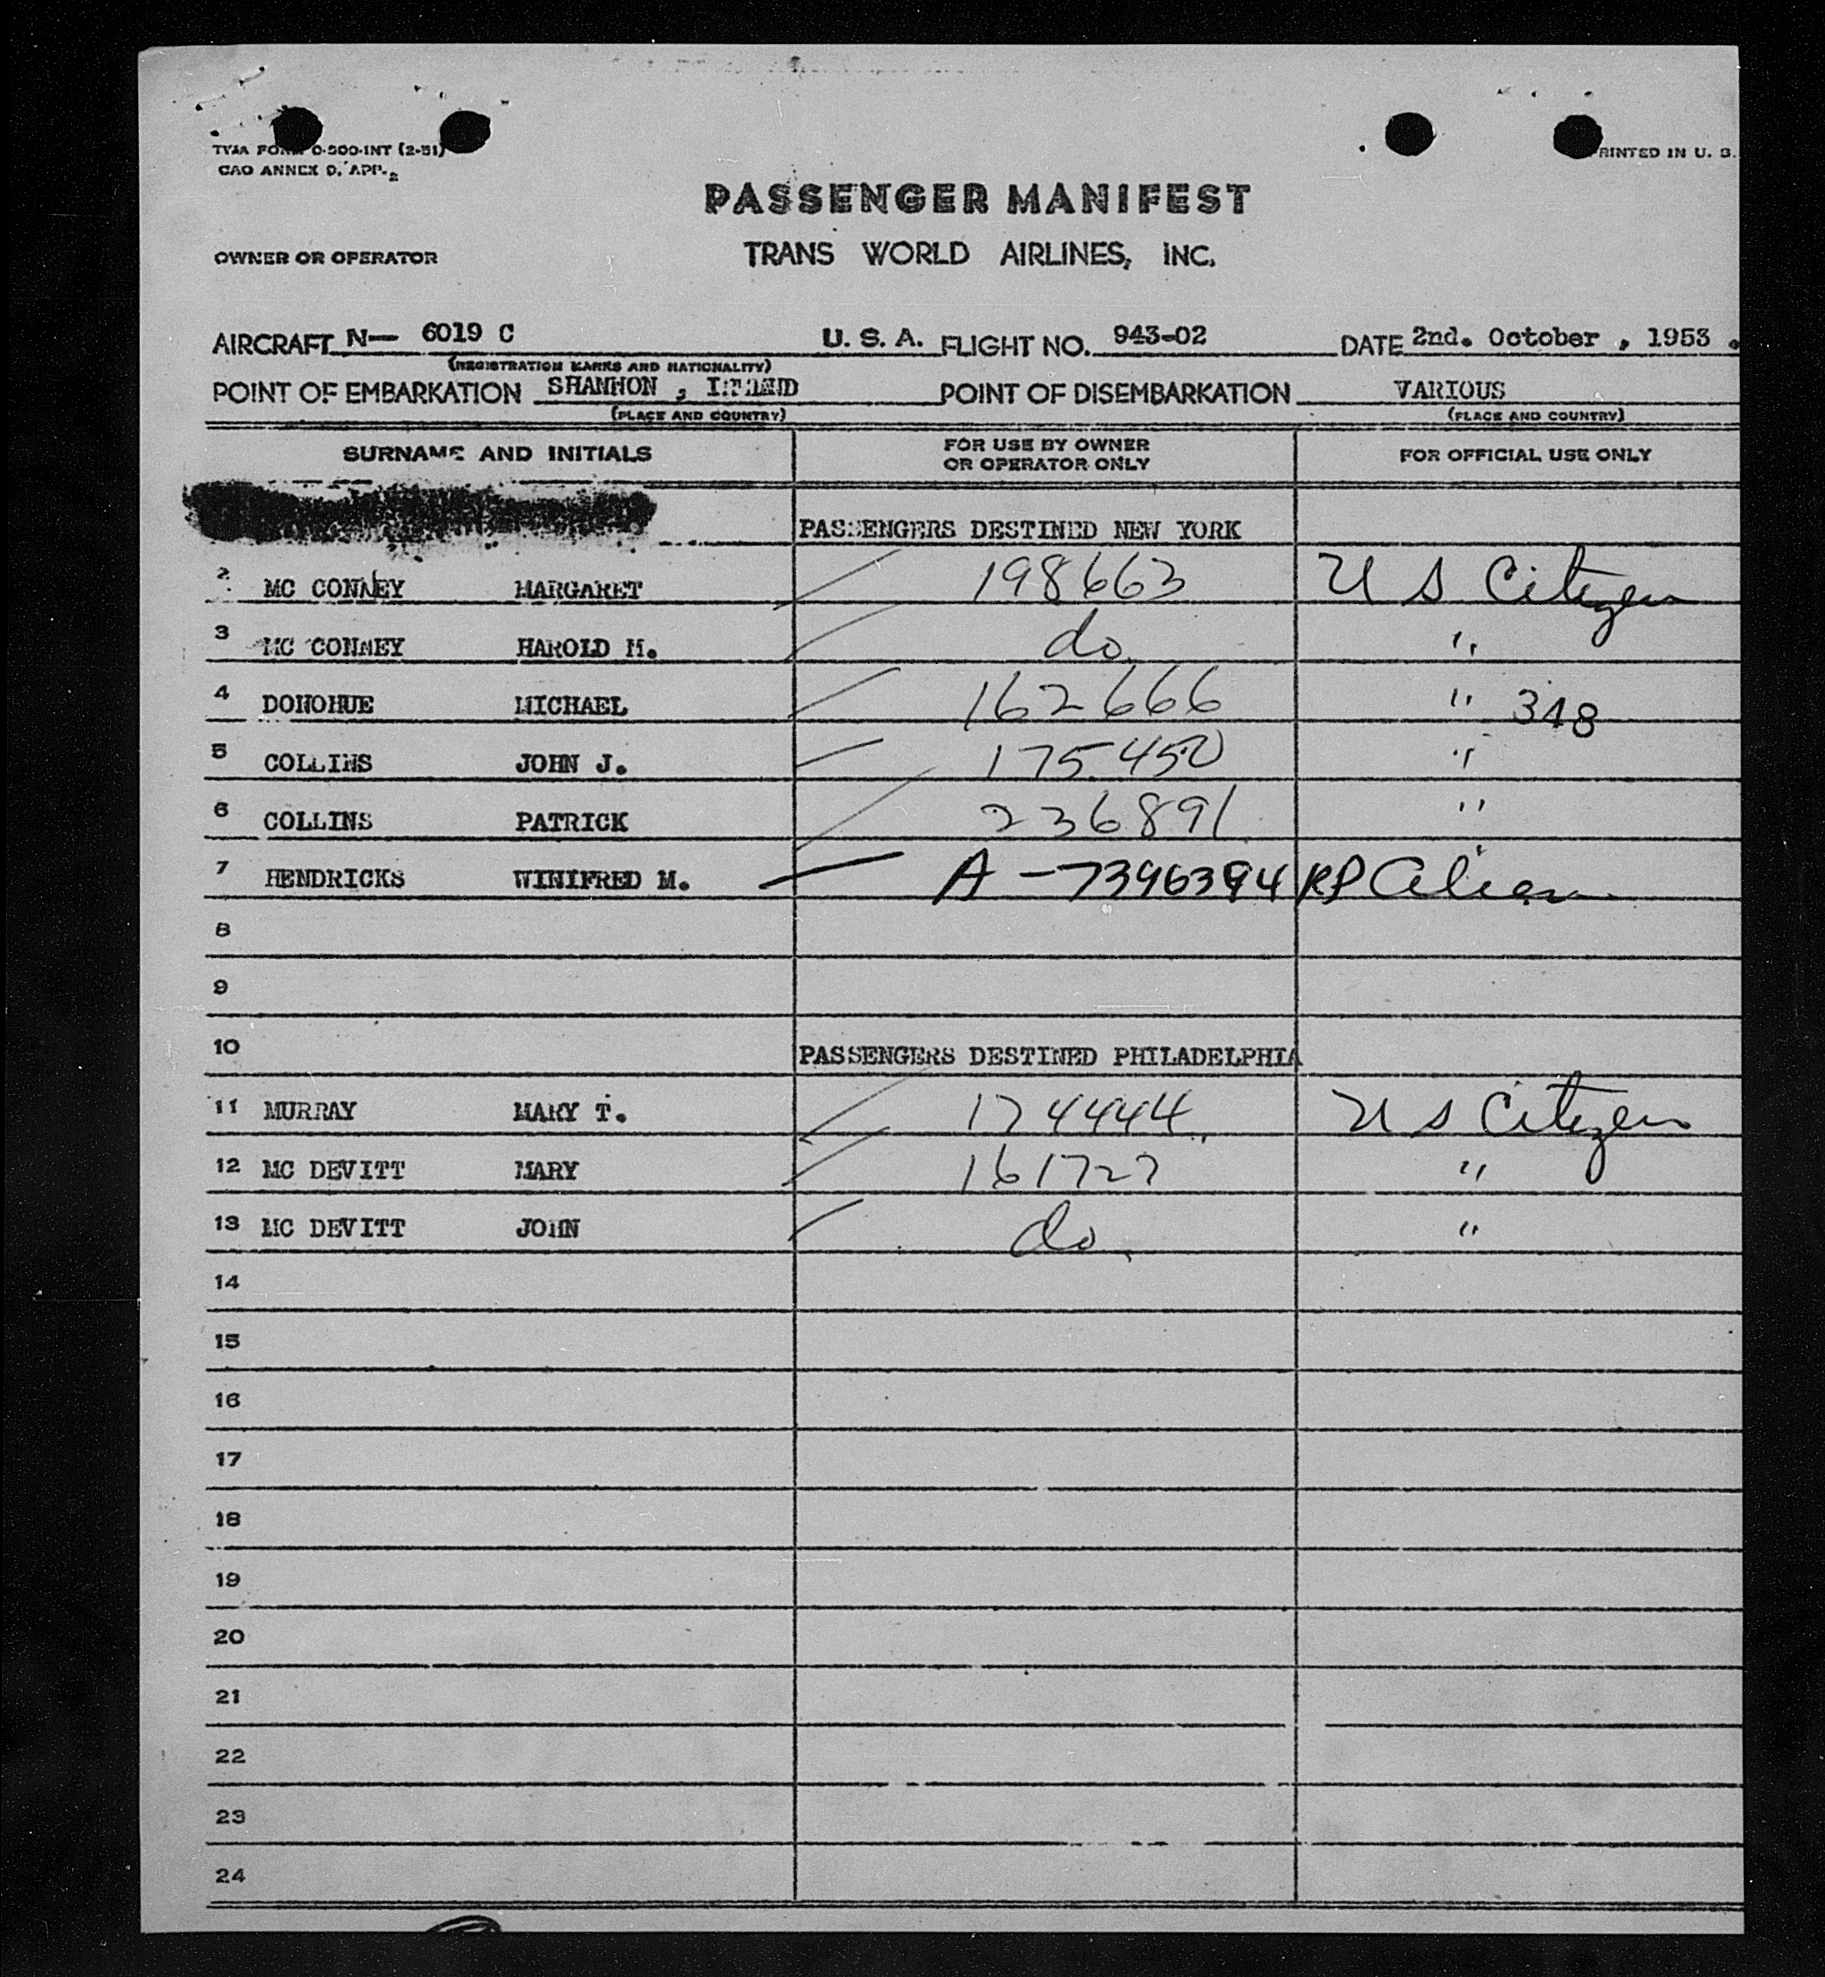 TWA FORM O-500-INT (2-51)
CAO ANNEX 9, APP. 2
PRINTED IN U. S.
PASSENGER MANIFEST
OWNER OR OPERATOR TRANS WORLD AIRLINES, INC.
AIRCRAFT N— 6019 C U. S. A. FLIGHT NO. 943-02 DATE 2nd. October , 1953 .
(REGISTRATION MARKS AND NATIONALITY)
POINT OF EMBARKATION SHANNON , IRELAND POINT OF DISEMBARKATION VARIOUS
(PLACE AND COUNTRY) (PLACE AND COUNTRY)
SURNAME AND INITIALS FOR USE BY OWNER OR OPERATOR ONLY FOR OFFICIAL USE ONLY
PASSENGERS DESTINED NEW YORK
2 MC CONNEY MARGARET 198663 U S Citizen
3 MC CONNEY HAROLD M. do "
4 DONOHUE MICHAEL 162666 " 348
5 COLLINS JOHN J. 175450 "
6 COLLINS PATRICK 236891 "
7 HENDRICKS WINIFRED M. A-7396394 RP Alien
8
9
10 PASSENGERS DESTINED PHILADELPHIA
11 MURRAY MARY T. 174444 U S Citizen
12 MC DEVITT MARY 161727 "
13 MC DEVITT JOHN do "
14
15
16
17
18
19
20
21
22
23
24